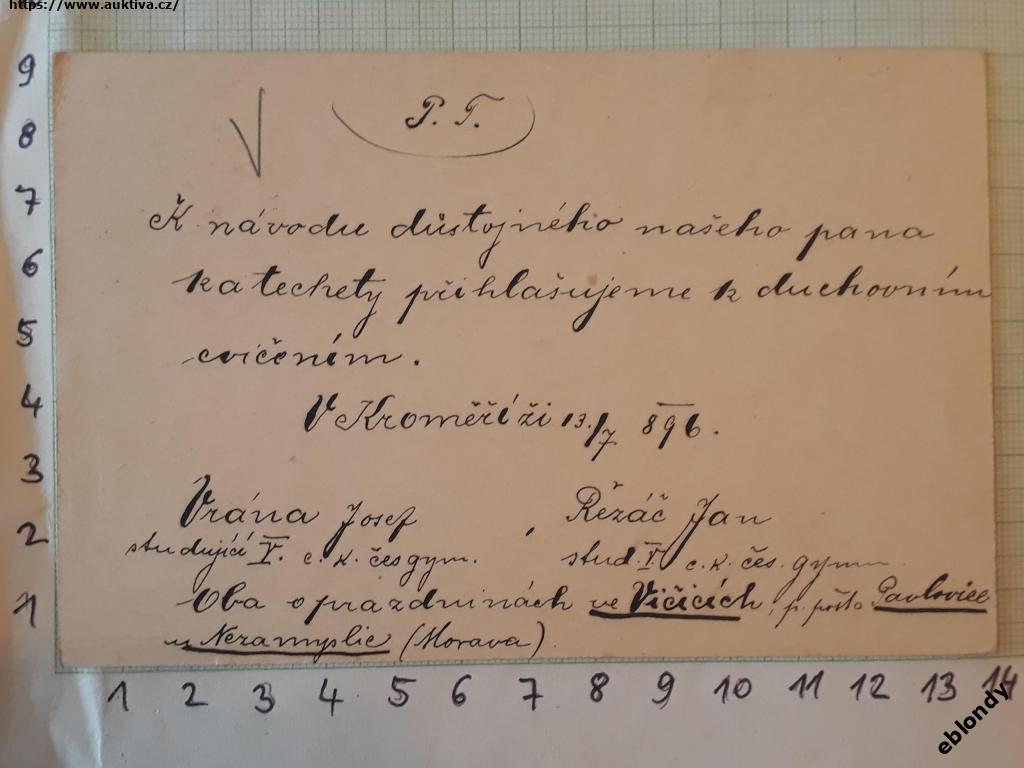 https://www.auktiva.cz/
P. T.
K návodu důstojného našeho pana
katechety přihlašujeme k duchovním
cvičením.
V Kroměříži 13./7 896.
Vrána Josef , Řezáč Jan
studující V. c. k. čes gym. stud. V. c. k. čes. gymn.
Oba o prazdninách ve Vičicích, p. pošta Pavlovice
u Nezamyslic (Morava).
9
8
7
6
5
4
3
2
1
1 2 3 4 5 6 7 8 9 10 11 12 13 14
eblondy